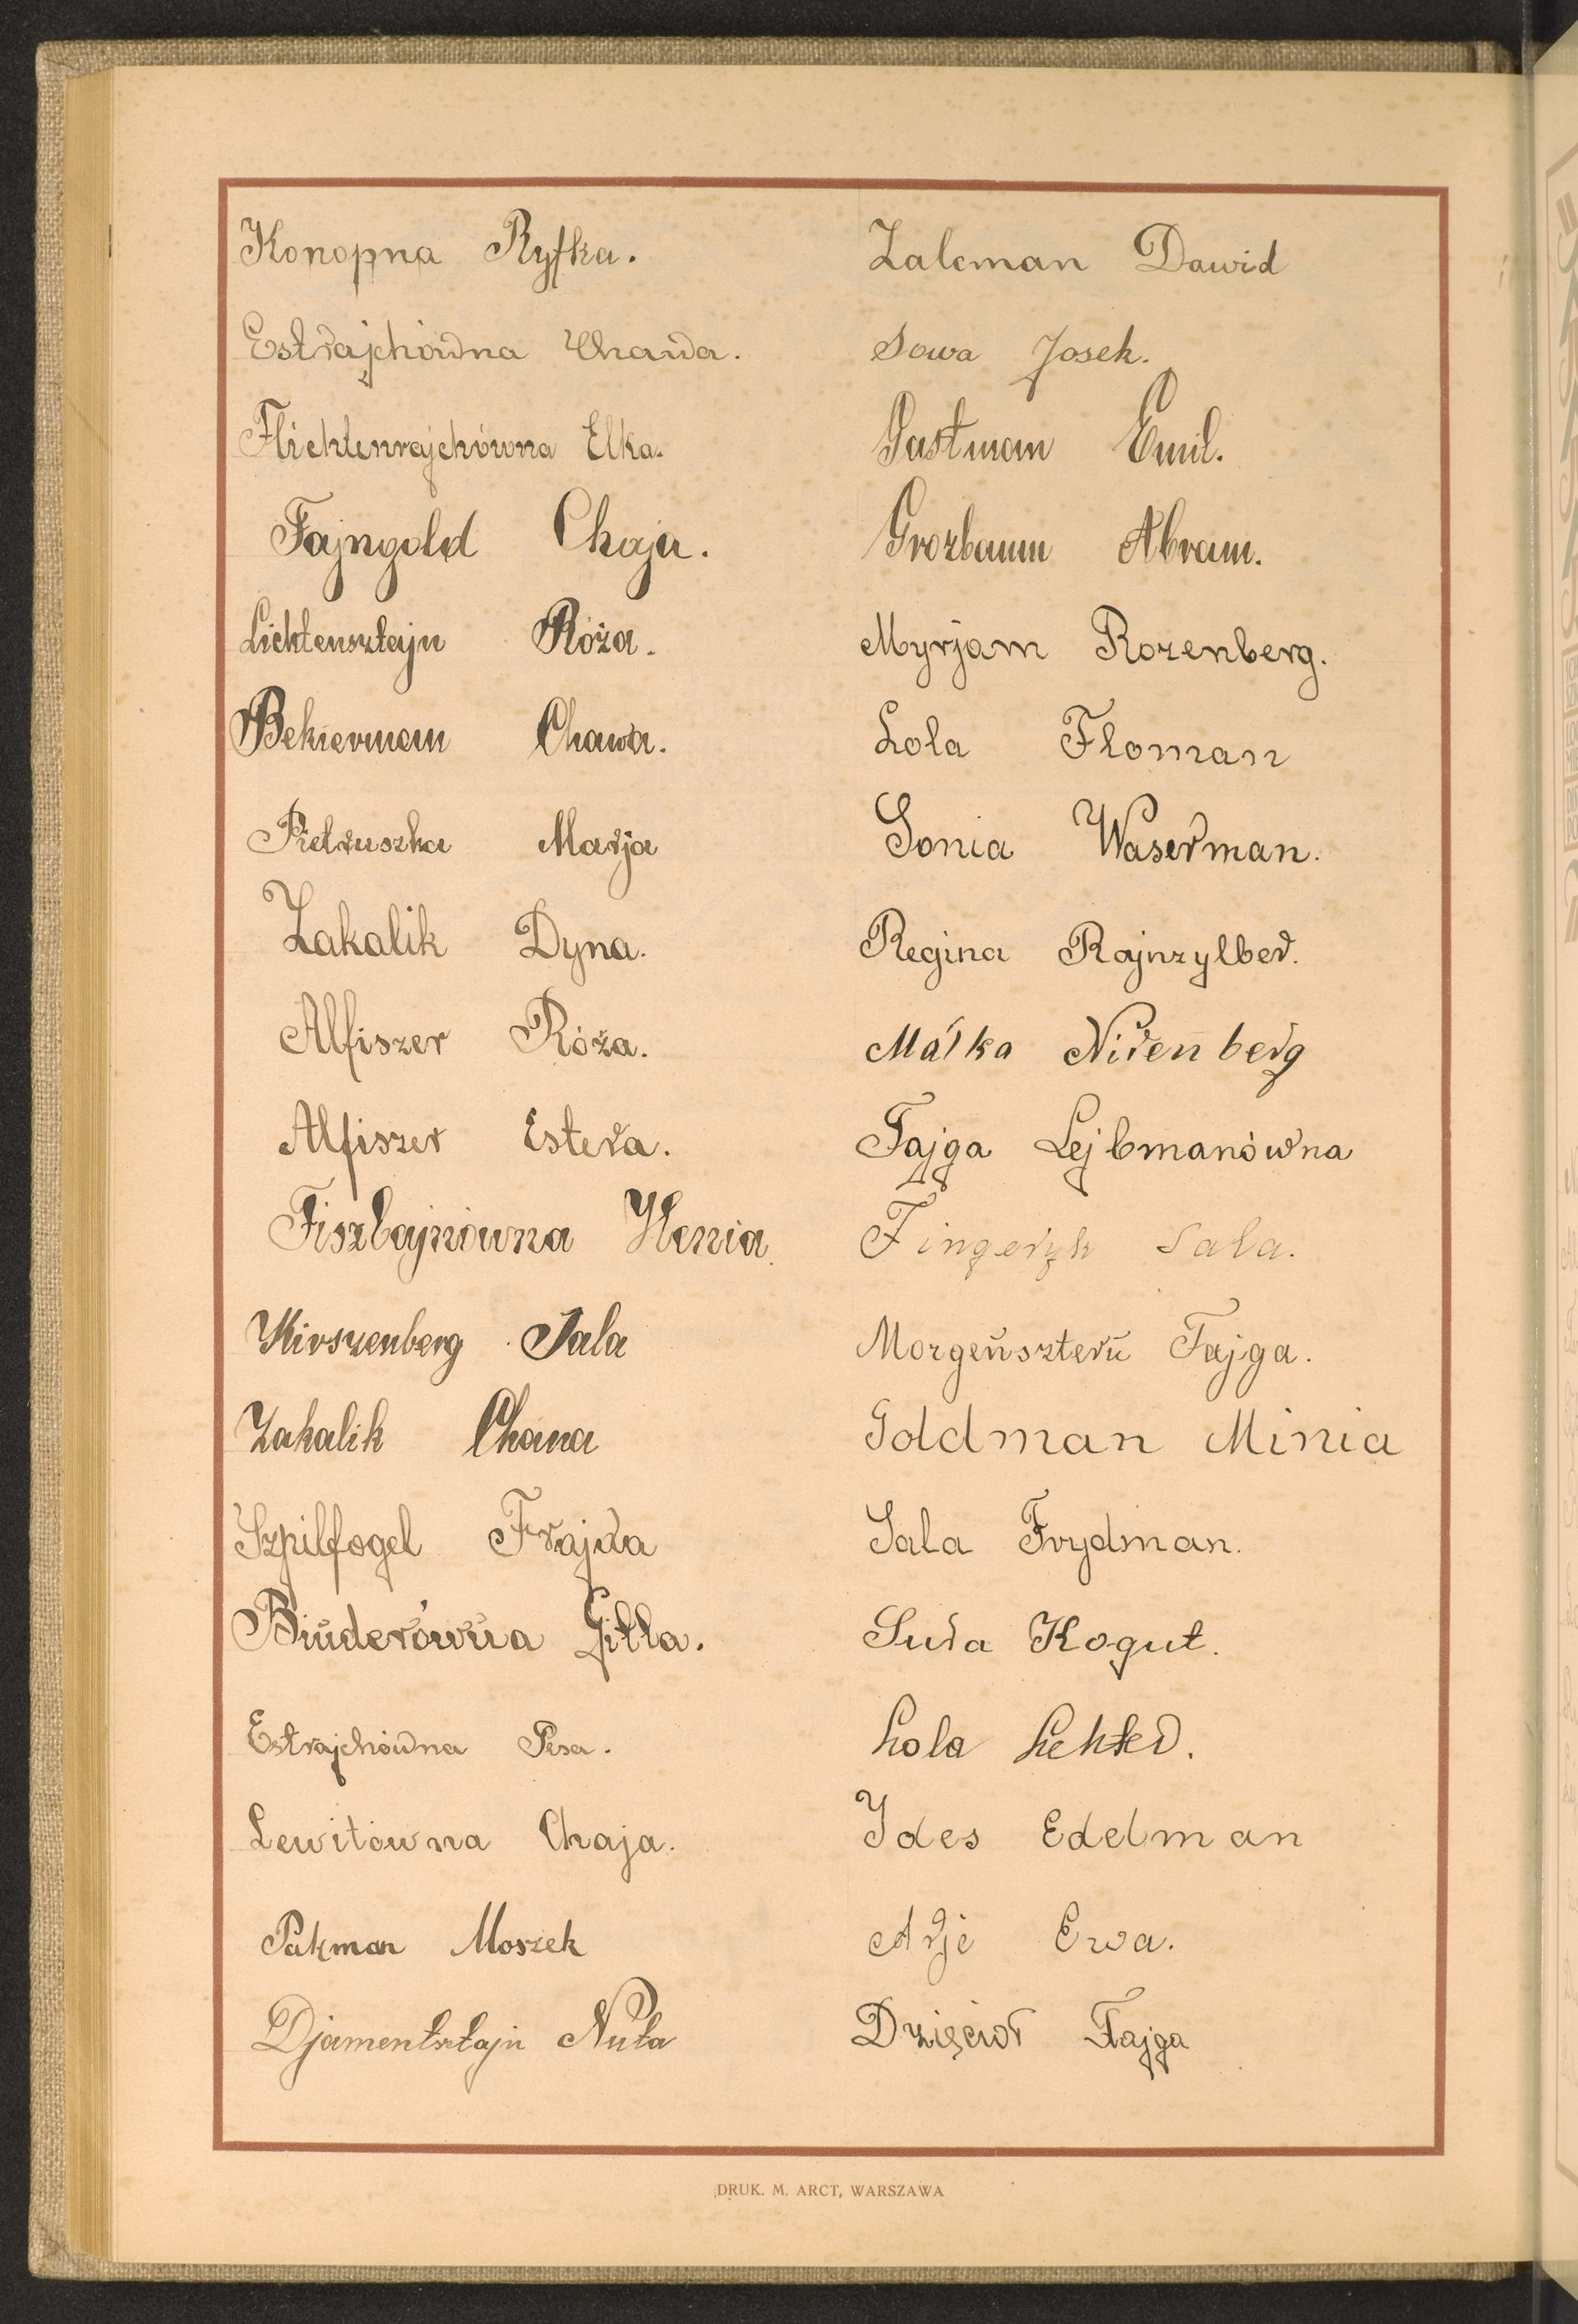 Konopna Ryfka.
Estrajchówna Chawa.
Flichtenrajchówna Elka.
Fajngold Chaja.
Lichtensztajn Róża.
Bekierman Chawa.
Pietruszka Marja
Zakalik Dyna.
Alfiszer Róża.
Alfiszer Estera.
Fiszbajnówna Henia.
Kirszenberg Sala
Zakalik Chana
Szpilfogel Frajda
Binderówna Gitla.
Estrajchówna Pesa.
Lewitówna Chaja.
Pakman Moszek
Djamentsztajn Nuta
Zalcman Dawid
Sowa Josek.
Gastman Emil.
Grozbaum Abram.
Myrjam Rozenberg.
Lola Floman
Sonia Waserman.
Regina Rajnzylber.
Malka Nirenberg
Fajga Lejbmanówna
Fingeryk Sala.
Morgensztern Fajga.
Goldman Minia
Sala Frydman.
Sura Kogut.
Lola Lehter.
Ides Edelman
Arje Ewa.
Dzięcioł Fajga
DRUK. M. ARCT, WARSZAWA